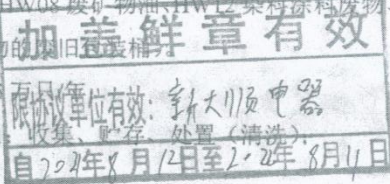 HW08废矿物油、HW12染料涂料废物
的废旧包装桶
加盖鲜章有效
限协议单位有效：新大顺电器
收集、贮存、处置（清洗）；
自2021年8月12日至2022年8月11日